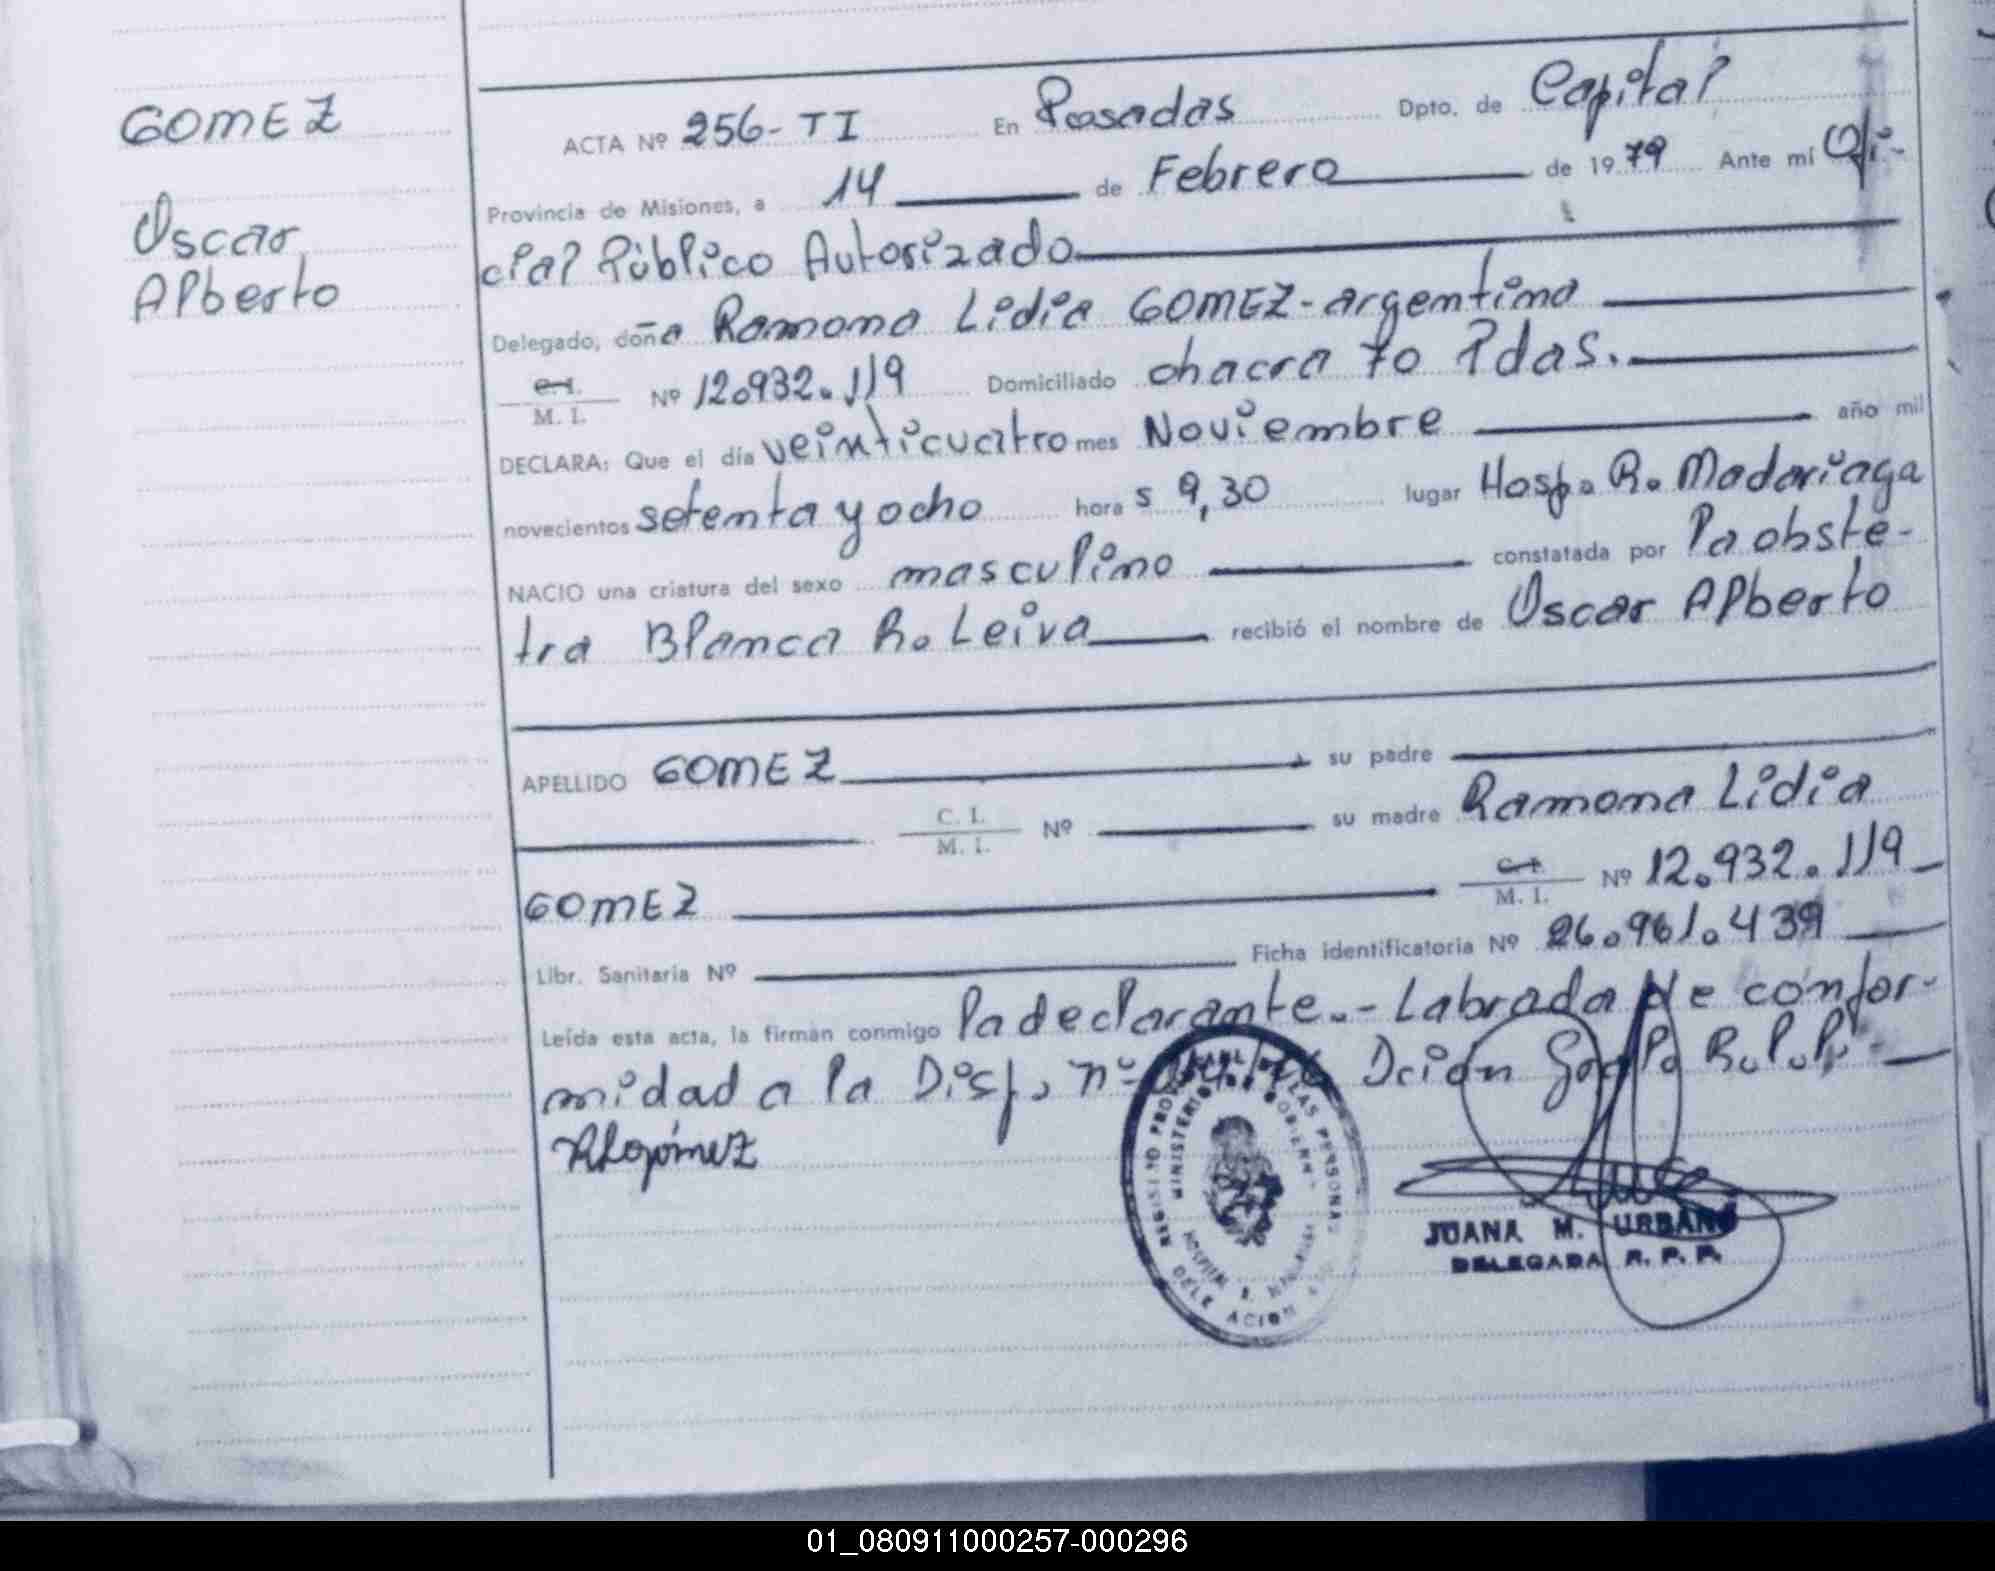 GOMEZ
Oscar
Alberto
ACTA Nº 256-TI En Posadas Dpto. de Capital
Provincia de Misiones, a 14 de Febrero de 1979 Ante mí Ofi-
cial Público Autorizado
Delegado, doña Ramona Lidia GOMEZ-argentina
C.I.
M. I. Nº 12.932.119 Domiciliado chacra 70 Pdas.
DECLARA: Que el día veinticuatro mes Noviembre año mil
novecientos setenta y ocho hora s 9,30 lugar Hosp. R. Madariaga
NACIO una criatura del sexo masculino constatada por la obste-
tra Blanca R. Leiva recibió el nombre de Oscar Alberto
APELLIDO GOMEZ su padre
C. I.
M. I. Nº su madre Ramona Lidia
GOMEZ C.I.
M. I. Nº 12.932.119
Libr. Sanitaria Nº Ficha identificatoria Nº 26.961.439
Leída esta acta, la firman conmigo la declarante.- Labrada de confor-
midad a la Disp. nº Dción Gral R.P.P.
RLGómez
REGISTRO PROV DE LAS PERSONAS
MINISTERIO GOBIERNO
HOSPITAL R. MADARIAGA
DELEGACION
JUANA M. URBANO
DELEGADA R. P. P.
01_080911000257-000296